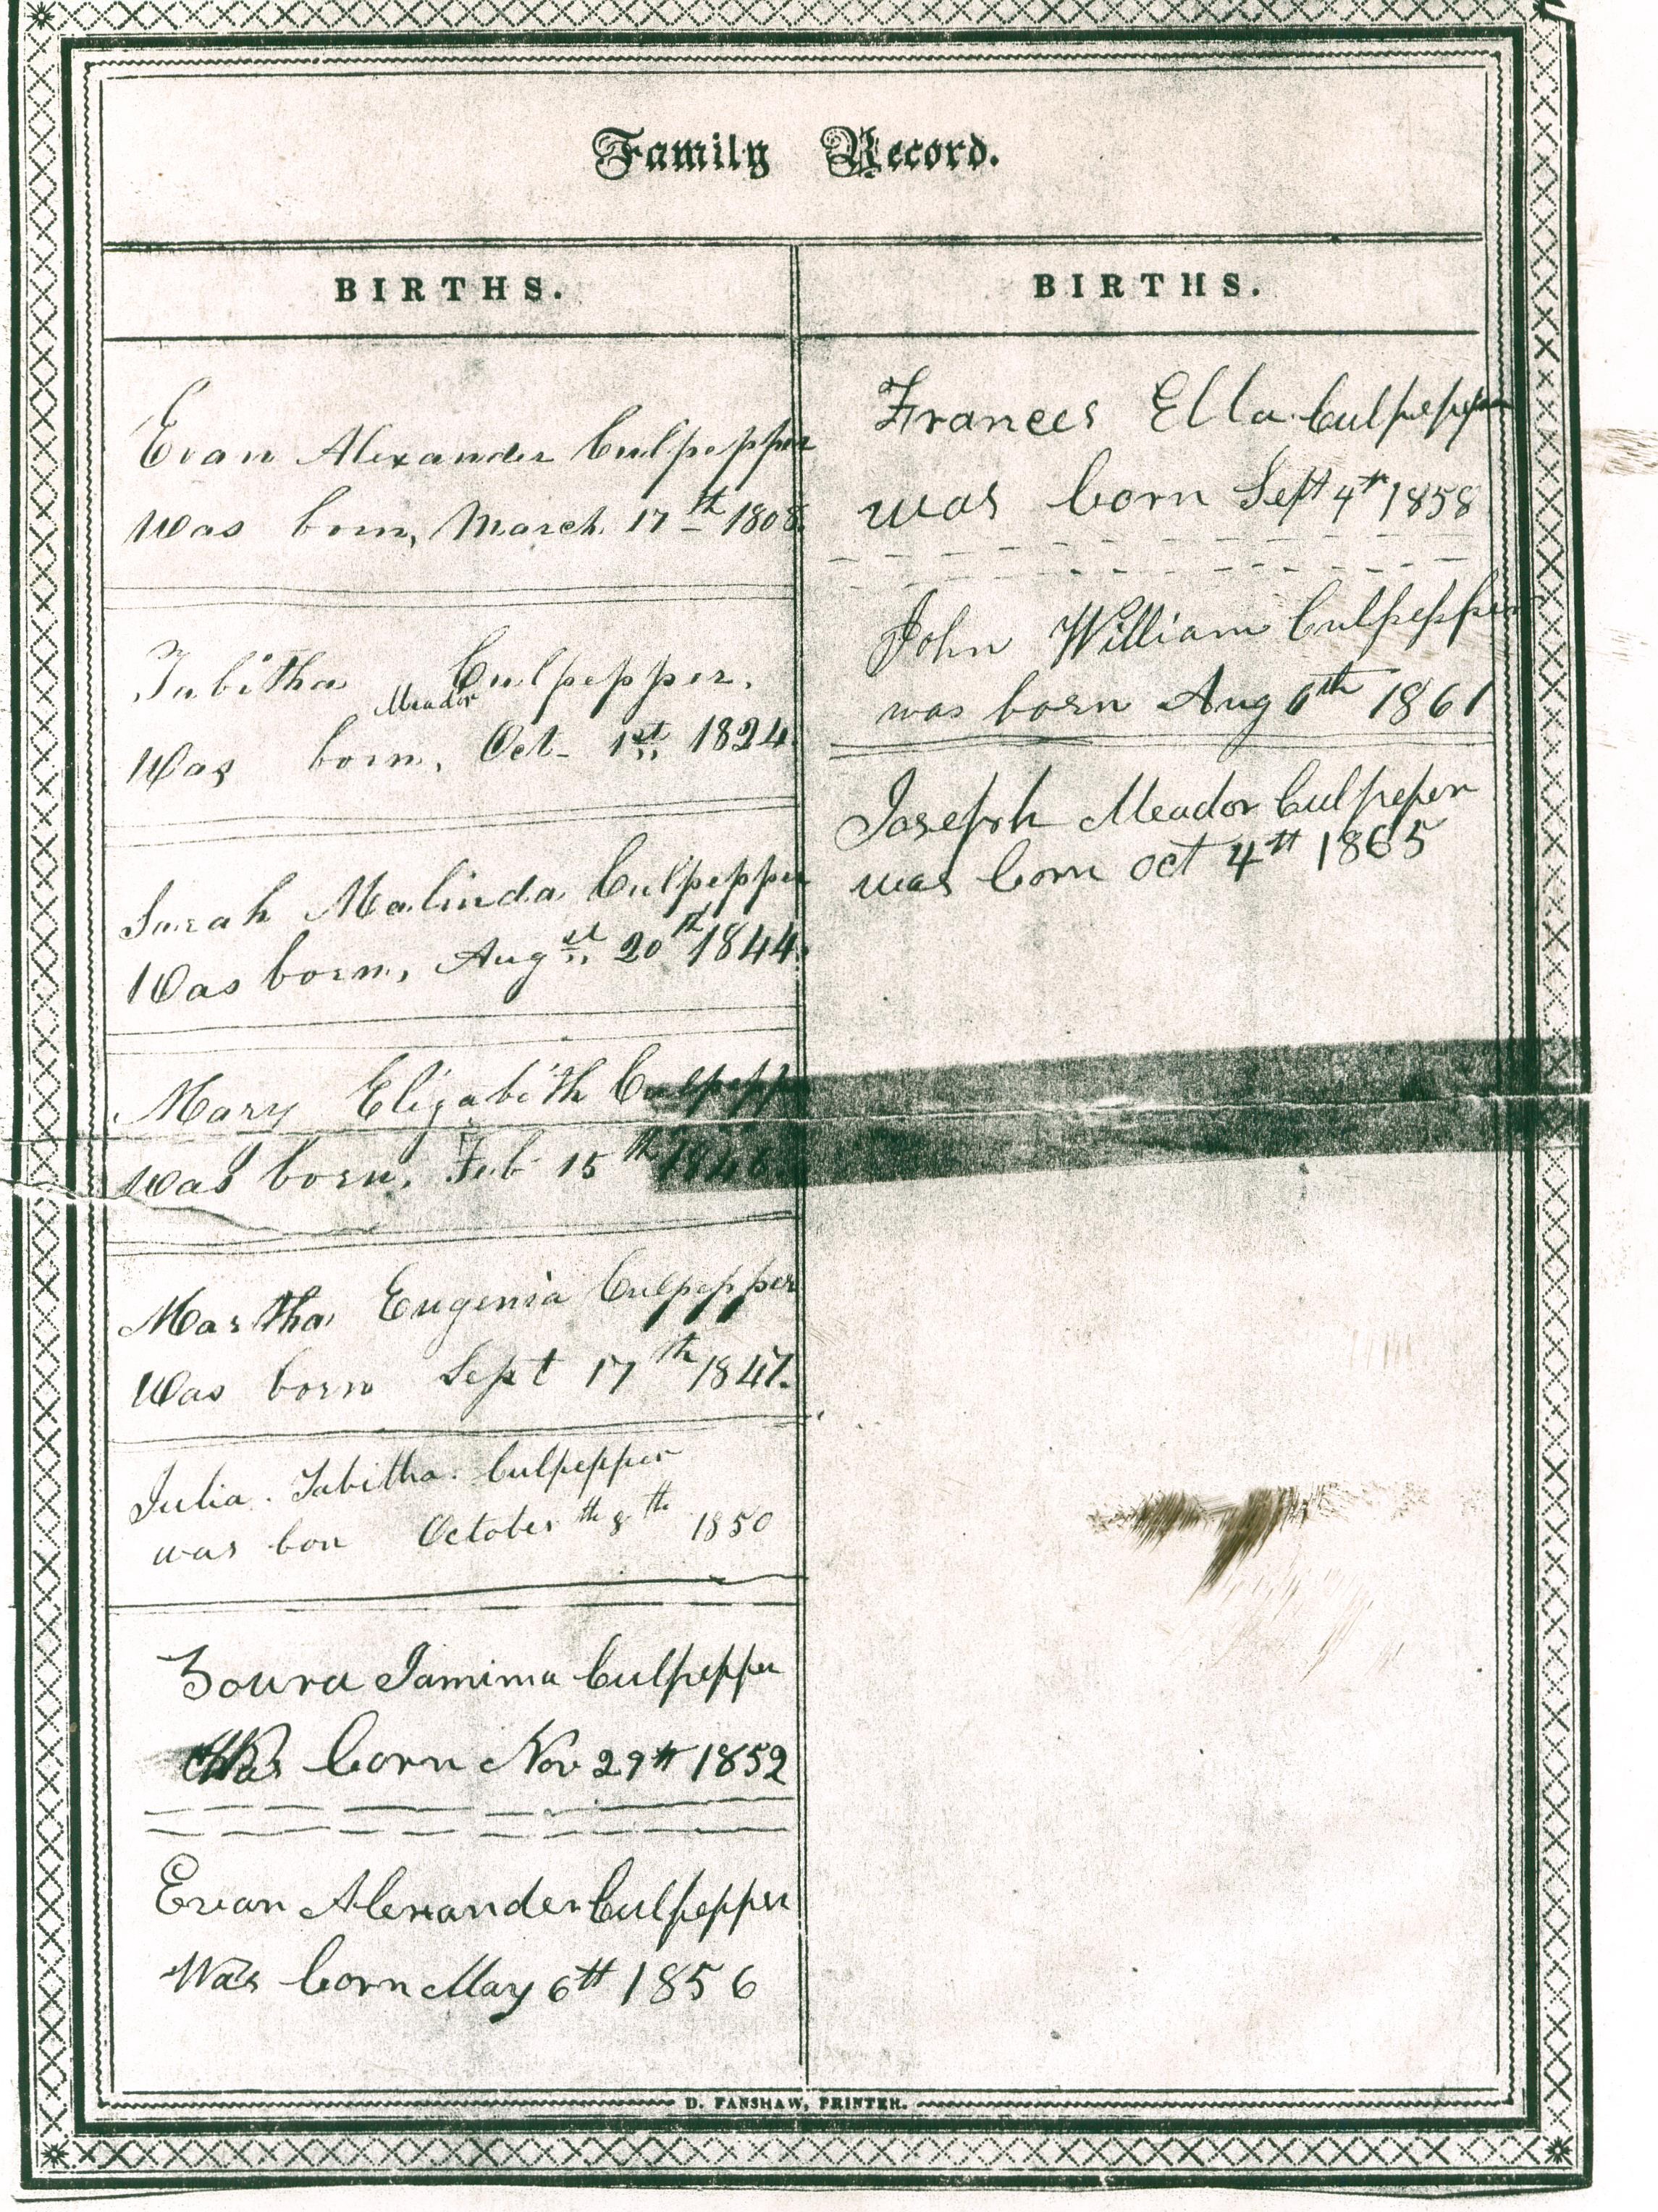 Family Record.
BIRTHS.
Evan Alexander Culpepper
Was born, March 17th 1808.
Tabitha Culpepper.
Meador
Was born, Oct- 1st 1824.
Sarah Malinda Culpepper
Was born, Augst 20th 1844.
Mary Elizabeth Culpepp
was born, Feb 15th 1846
Martha Eugenia Culpepper
Was born Sept 17th 1847.
Julia. Tabitha. Culpepper
was bon October th 8th 1850
Zoura Jamima Culpepper
Was born Nov 29th 1852
Evan Alexander Culpepper
Was born May 6th 1856
BIRTHS.
Frances Ella Culpepper
was born Sept 4th 1858
John William Culpepper
was born Aug 6th 1861
Joseph Meador Culpeper
was born oct 4th 1865
D. FANSHAW, PRINTER.